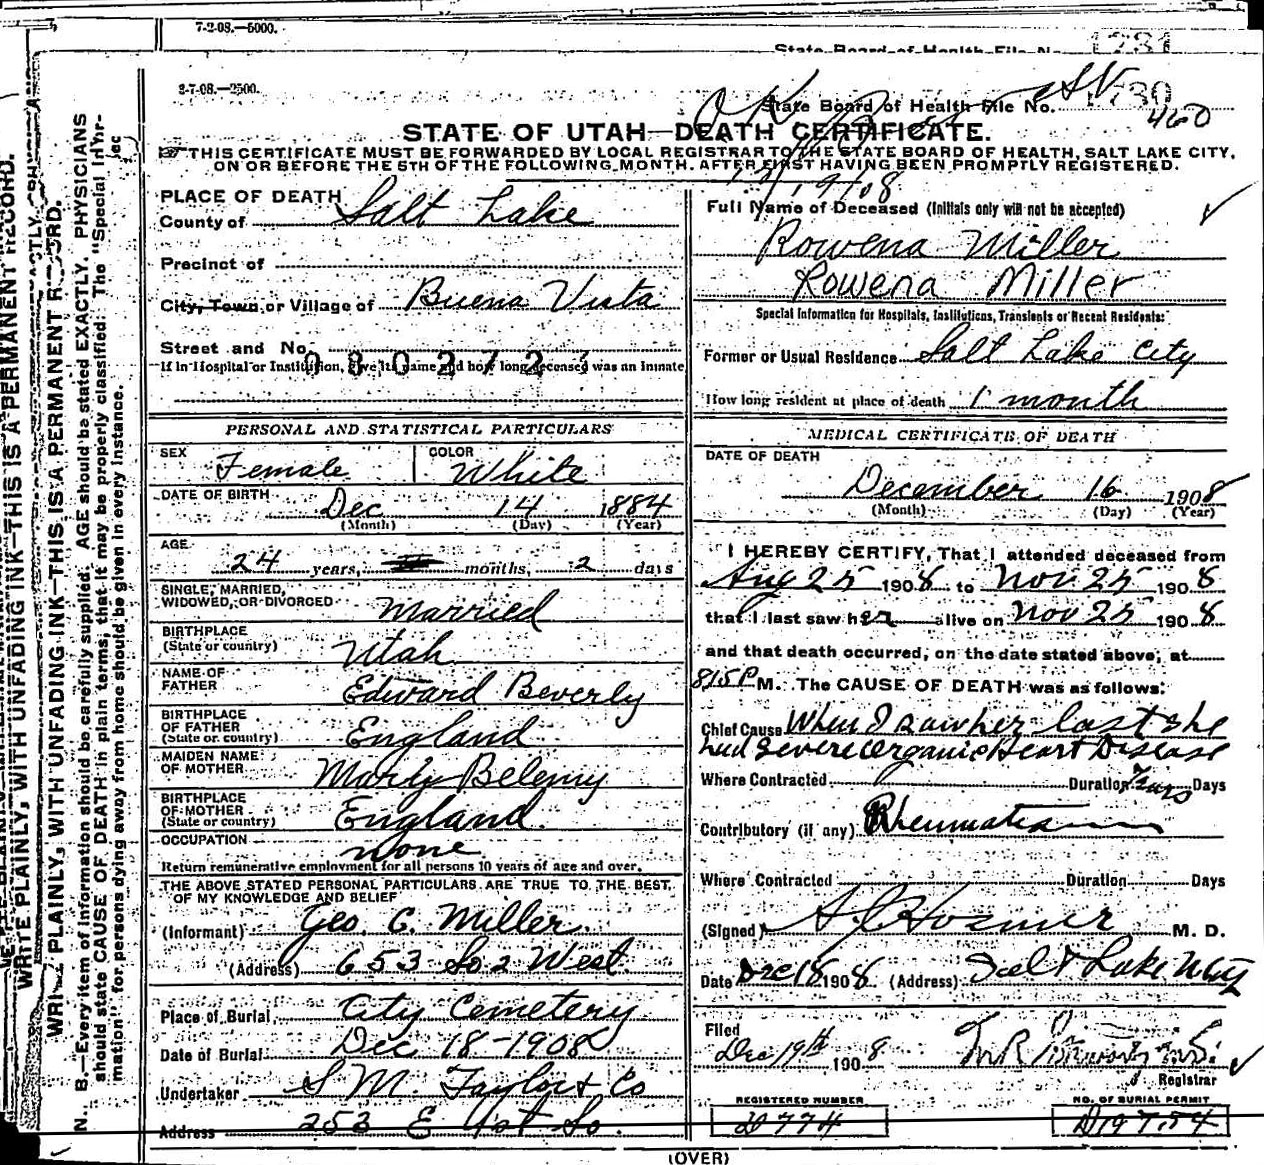 7-2-08.—5000.
State Board of Health File No. 1731
8-7-08.—2500.
State Board of Health File No. 1730
460
OK
STATE OF UTAH—DEATH CERTIFICATE.
THIS CERTIFICATE MUST BE FORWARDED BY LOCAL REGISTRAR TO THE STATE BOARD OF HEALTH, SALT LAKE CITY,
ON OR BEFORE THE 5TH OF THE FOLLOWING MONTH, AFTER FIRST HAVING BEEN PROMPTLY REGISTERED.
PLACE OF DEATH
County of Salt Lake
Precinct of
City, Town or Village of Buena Vista
Street and No.
0802727
If in Hospital or Institution, give its name and how long deceased was an inmate
PERSONAL AND STATISTICAL PARTICULARS
SEX Female COLOR White
DATE OF BIRTH Dec 14 1884
(Month) (Day) (Year)
AGE 24 years, months, 2 days
SINGLE, MARRIED,
WIDOWED, OR DIVORCED Married
BIRTHPLACE
(State or country) Utah
NAME OF
FATHER Edward Beverly
BIRTHPLACE
OF FATHER
(State or country) England
MAIDEN NAME
OF MOTHER Mardy Belemy
BIRTHPLACE
OF MOTHER
(State or country) England
OCCUPATION none
Return remunerative employment for all persons 10 years of age and over.
THE ABOVE STATED PERSONAL PARTICULARS ARE TRUE TO THE BEST
OF MY KNOWLEDGE AND BELIEF
(Informant) Geo. C. Miller
(Address) 653 So 2 West.
Place of Burial City Cemetery
Date of Burial Dec 18-1908
Undertaker S M. Taylor & Co
Address 253 E 1st So.
Full Name of Deceased (Initials only will not be accepted)
Rowena Miller
Rowena Miller
Special Information for Hospitals, Institutions, Transients or Recent Residents:
Former or Usual Residence Salt Lake City
How long resident at place of death 1 month
MEDICAL CERTIFICATE OF DEATH
DATE OF DEATH
December 16 1908
(Month) (Day) (Year)
I HEREBY CERTIFY, That I attended deceased from
Aug 25 1908 to Nov 25 1908
that I last saw her alive on Nov 25 1908
and that death occurred, on the date stated above, at
815 P M. The CAUSE OF DEATH was as follows:
Chief Cause When I saw her last she
had severe organic Heart Disease
Where Contracted Duration Years Days
Contributory (if any) Rheumatism
Where Contracted Duration Days
(Signed) M. D.
Date Dec 18 1908 (Address) Salt Lake
Filed
Dec 19th 1908
Registrar
REGISTERED NUMBER
D774
NO. OF BURIAL PERMIT
D19754
(OVER)
WRITE PLAINLY, WITH UNFADING INK—THIS IS A PERMANENT RECORD.
WRITE PLAINLY, WITH UNFADING INK—THIS IS A PERMANENT RECORD.
N. B.—Every item of information should be carefully supplied. AGE should be stated EXACTLY. PHYSICIANS
should state CAUSE OF DEATH in plain terms, that it may be properly classified. The "Special Infor-
mation" for persons dying away from home should be given in every instance.